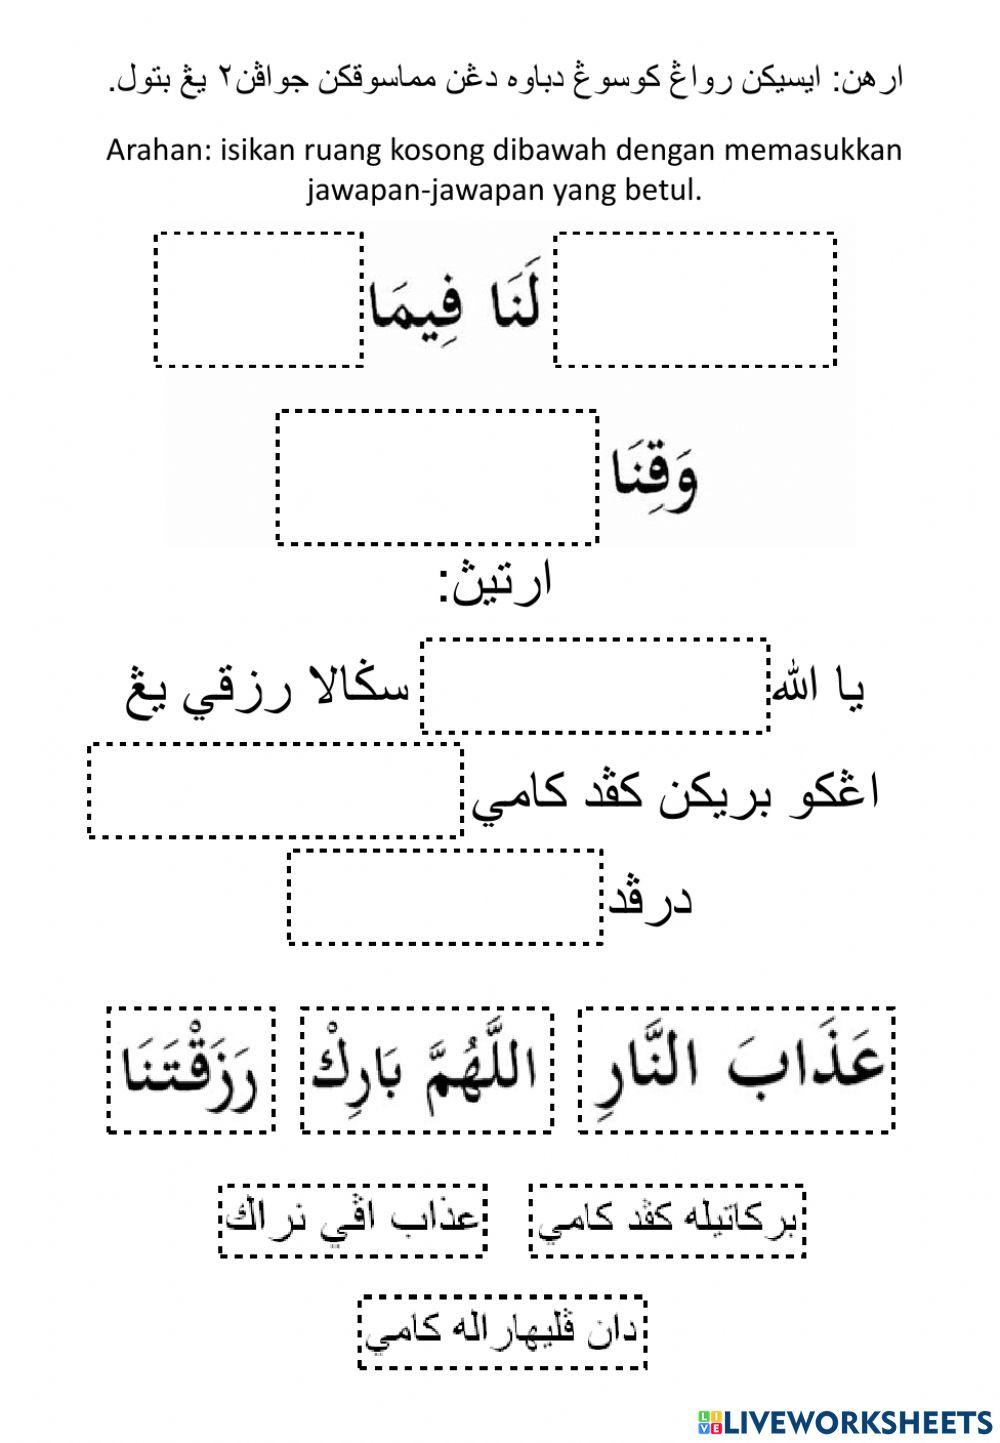 ارهن: ايسيكن رواڠ كوسوڠ دباوه دڠن مماسوقكن جواڤن٢ يڠ بتول.
Arahan: isikan ruang kosong dibawah dengan memasukkan
jawapan-jawapan yang betul.
لَنَا فِيمَا
وَقِنَا
ارتيڽ:
يا الله سݢالا رزقي يڠ
اڠكو بريكن كڤد كامي
درڤد
عَذَابَ النَّارِ اللَّهُمَّ بَارِكْ رَزَقْتَنَا
بركاتيله كڤد كامي عذاب اڤي نراك
دان ڤليهاراله كامي
LIVEWORKSHEETS